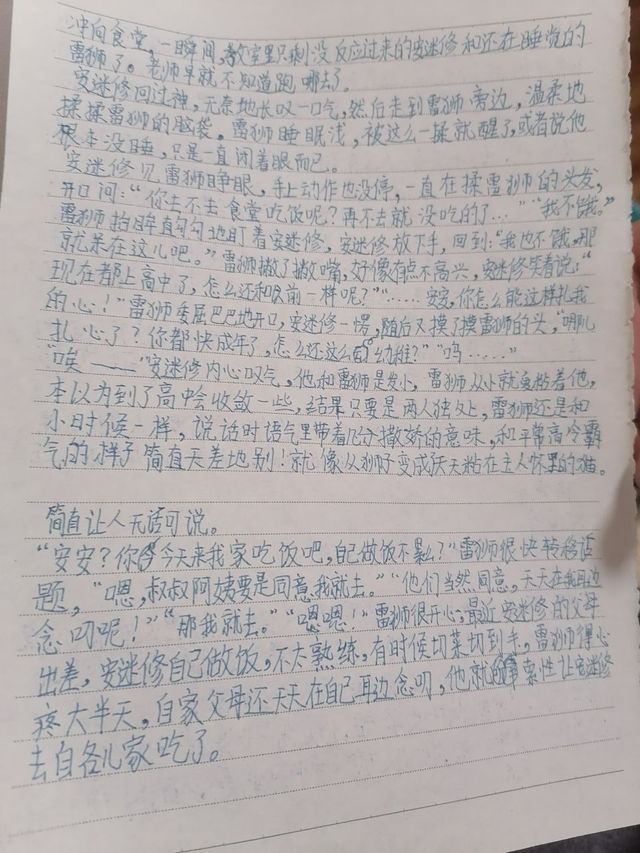 冲向食堂，一瞬间，教室里只剩没反应过来的安迷修和还在睡觉的
雷狮了。老师早就不知道跑哪去了。
安迷修回过神，无奈地长叹一口气，然后走到雷狮旁边，温柔地
揉揉雷狮的脑袋。雷狮睡眠浅，被这么一揉就醒了，或者说他
根本没睡，只是一直闭着眼而已。
安迷修见雷狮睁眼，手上动作也没停，一直在揉雷狮的头发，
开口问：“你去不去食堂吃饭呢？再不去就没吃的了…”“我不饿。”
雷狮抬眸直勾勾地盯着安迷修，安迷修放下手，回到：“我也不饿，那
就呆在这儿吧。”雷狮撇了撇嘴，好像有点不高兴，安迷修笑着说：“
现在都上高中了，怎么还和以前一样呢？”“……安安，你怎么能这样扎我
的心！”雷狮委屈巴巴地开口，安迷修一愣，随后又摸了摸雷狮的头，“哪儿
扎心了？你都快成年了，怎么还这么幼稚？”“呜……”
“唉——”安迷修内心叹气，他和雷狮是发小，雷狮从小就爱粘着他，
本以为到了高中会收敛一些，结果只要是两人独处，雷狮还是和
小时候一样，说话时语气里带着几分撒娇的意味，和平常高冷霸
气的样子简直天差地别！就像从狮子变成天天粘在主人怀里的猫。
简直让人无话可说。
“安安？你今天来我家吃饭吧，自己做饭不累么？”雷狮很快转移话
题，“嗯，叔叔阿姨要是同意我就去。”“他们当然同意，天天在我耳边
念叨呢！”“那我就去。”“嗯嗯！”雷狮很开心；最近安迷修的父母
出差，安迷修自己做饭，不太熟练，有时候切菜切到手，雷狮得心
疼大半天，自家父母还天天在自己耳边念叨，他就索性让安迷修
去自各儿家吃了。